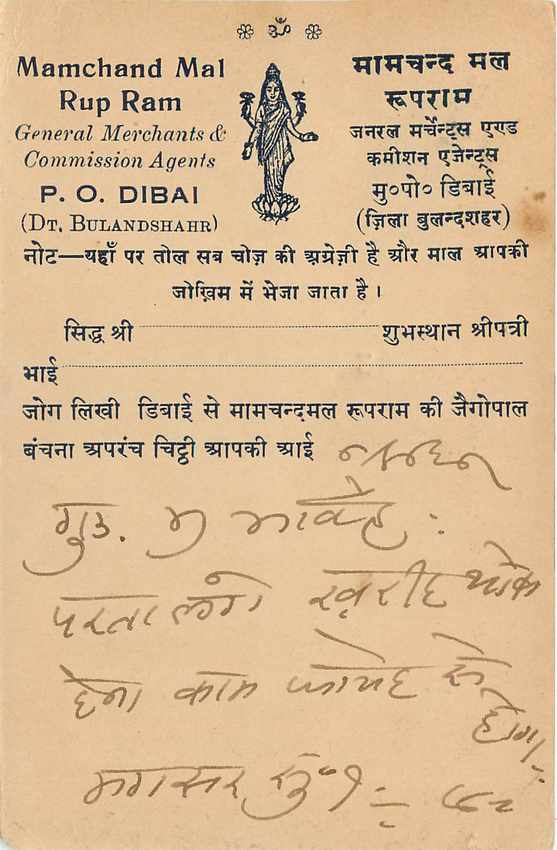 ॐ
Mamchand Mal
Rup Ram
General Merchants &
Commission Agents
P. O. DIBAI
(DT. BULANDSHAHR)
मामचन्द मल
रूपराम
जनरल मर्चेन्ट्स एण्ड
कमीशन एजेन्ट्स
मु०पो० डिबाई
(ज़िला बुलन्दशहर)
नोट—यहाँ पर तोल सब चोज़ की अग्रेज़ी है और माल आपकी
जोख़िम में भेजा जाता है ।
सिद्ध श्री शुभस्थान श्रीपत्री
भाई
जोग लिखी डिबाई से मामचन्दमल रूपराम की जैगोपाल
बंचना अपरंच चिट्ठी आपकी आई
गुड.
परता लगे खरीद
देना काम फायदे से
होगा
मगसर सु० १